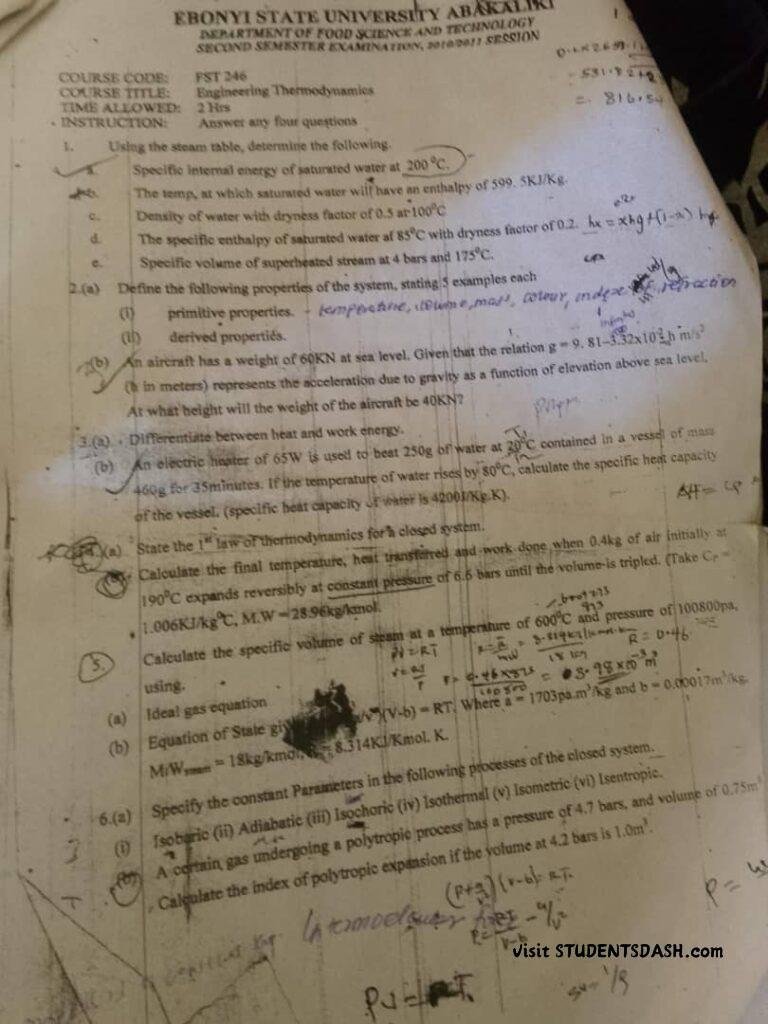 EBONYI STATE UNIVERSITY ABAKALIKI
DEPARTMENT OF FOOD SCIENCE AND TECHNOLOGY
SECOND SEMESTER EXAMINATION, 2010/2011 SESSION
COURSE CODE: FST 246
COURSE TITLE: Engineering Thermodynamics
TIME ALLOWED: 2 Hrs
INSTRUCTION: Answer any four questions
= 816.54
1. Using the steam table, determine the following.
a. Specific internal energy of saturated water at 200 °C.
b. The temp, at which saturated water will have an enthalpy of 599. 5KJ/Kg.
c. Density of water with dryness factor of 0.5 at 100°C
d. The specific enthalpy of saturated water at 85°C with dryness factor of 0.2. hx = xhg + (1-x) hf
e. Specific volume of superheated stream at 4 bars and 175°C.
2.(a) Define the following properties of the system, stating 5 examples each
(i) primitive properties. - temperature, volume, mass, colour, index of refraction
(ii) derived properties.
(b) An aircraft has a weight of 60KN at sea level. Given that the relation g = 9. 81-3.32x10 h m/s²
(h in meters) represents the acceleration due to gravity as a function of elevation above sea level.
At what height will the weight of the aircraft be 40KN?
3.(a) Differentiate between heat and work energy.
(b) An electric heater of 65W is used to heat 250g of water at 20°C contained in a vessel of mass
460g for 35minutes. If the temperature of water rises by 80°C, calculate the specific heat capacity
of the vessel. (specific heat capacity of water is 4200J/Kg.K).
ΔH = CP
4.(a) State the 1st law of thermodynamics for a closed system.
(b) Calculate the final temperature, heat transferred and work done when 0.4kg of air initially at
190°C expands reversibly at constant pressure of 6.6 bars until the volume is tripled. (Take CP =
1.006KJ/kg°C, M.W = 28.96kg/kmol.
5. Calculate the specific volume of steam at a temperature of 600°C and pressure of 100800pa,
using.
PV = RT
R = 0.46
(a) Ideal gas equation
(b) Equation of State (V-b) = RT. Where a = 1703pa.m³/kg and b = 0.00017m³/kg.
= 18kg/kmol, = 8.314KJ/Kmol. K.
6.(a) Specify the constant Parameters in the following processes of the closed system.
(i) Isobaric (ii) Adiabatic (iii) Isochoric (iv) Isothermal (v) Isometric (vi) Isentropic.
(b) A certain gas undergoing a polytropic process has a pressure of 4.7 bars, and volume of 0.75m³
Calculate the index of polytropic expansion if the volume at 4.2 bars is 1.0m³.
(P+a/v²)(v-b) = RT.
P = RT/v-b - a/v²
Visit STUDENTSDASH.com